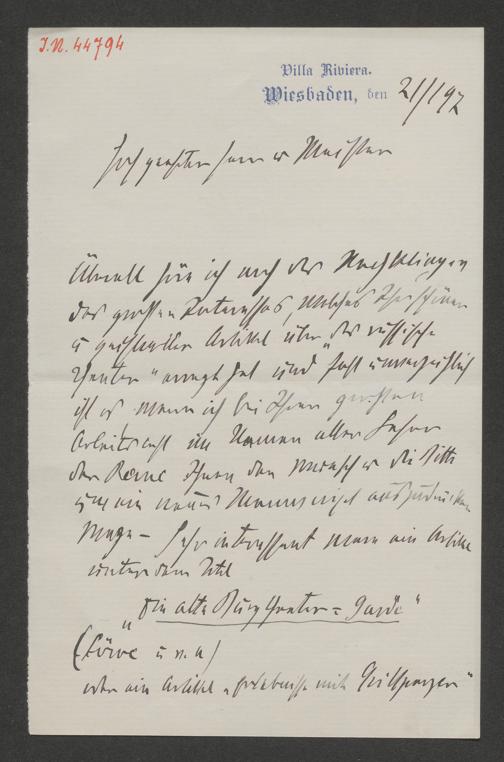 J.N. 44794
Villa Riviera.
Wiesbaden, den 21/1 97
Hochgeehrter Herr u Meister
Überall höre ich noch das Nachklingen
des grossen Interesses, welches Ihr schöner
u geistvoller Artikel über „das russische
Theater" erregt hat und fast
ist es wenn ich bei Ihrer großen
Arbeitslast im Namen aller Leser
der Revue Ihnen den Wunsch u die Bitte
um ein neues Manuscript auszudrücken
wage – Sehr interessant wäre ein Artikel
unter dem Titel
„Die alte Burgtheater = Garde"
(Löwe u s. w)
oder ein Artikel „Erlebnisse mit Grillparzer"